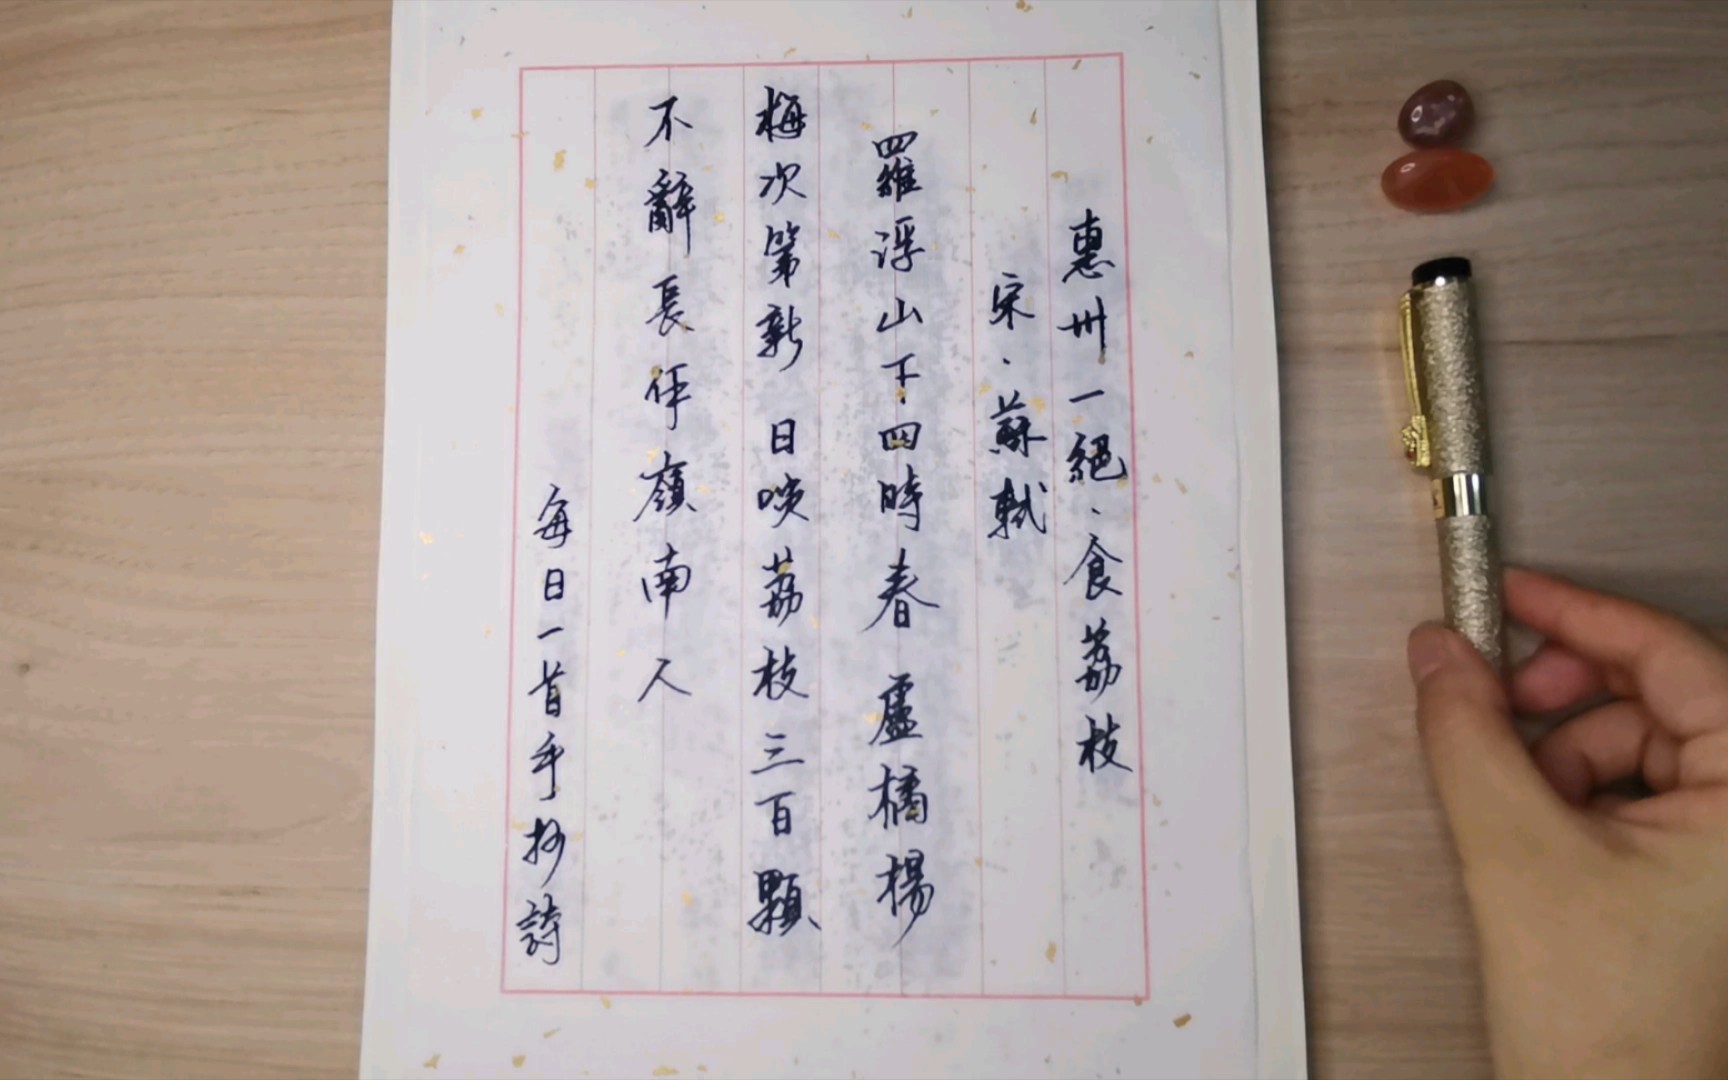 惠州一絕·食荔枝
宋·蘇軾
羅浮山下四時春 盧橘楊
梅次第新 日啖荔枝三百顆
不辭長作嶺南人
每日一首手抄詩